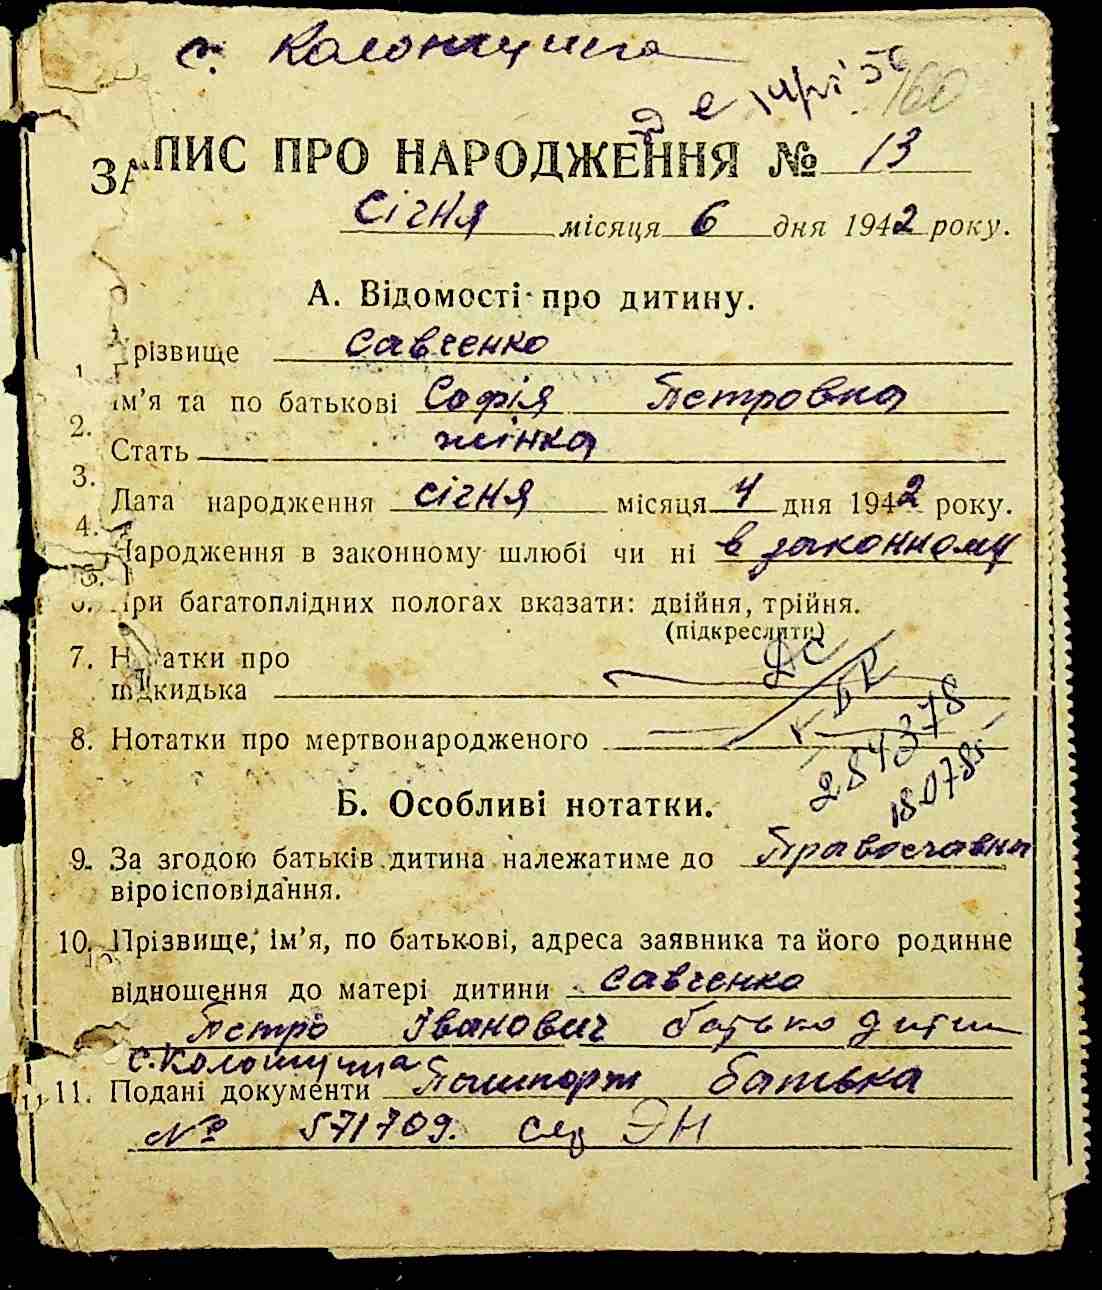 с. Коломицина
160
ЗАПИС ПРО НАРОДЖЕННЯ № 13
січня місяця 6 дня 1942 року.
А. Відомості про дитину.
1. Прізвище Савченко
2. Ім'я та по батькові Софія Петровна
3. Стать жінка
4. Дата народження січня місяця 4 дня 1942 року.
5. Народження в законному шлюбі чи ні в законному
6. При багатоплідних пологах вказати: двійня, трійня.
(підкреслити)
7. Нотатки про
підкидька
8. Нотатки про мертвонародженого
284378
180785
Б. Особливі нотатки.
9. За згодою батьків дитина належатиме до Православни
віроісповідання.
10. Прізвище, ім'я, по батькові, адреса заявника та його родинне
відношення до матері дитини Савченко
Петро Іванович батько дитини
11. Подані документи Пашпорт батька
№ 571709. ЭН